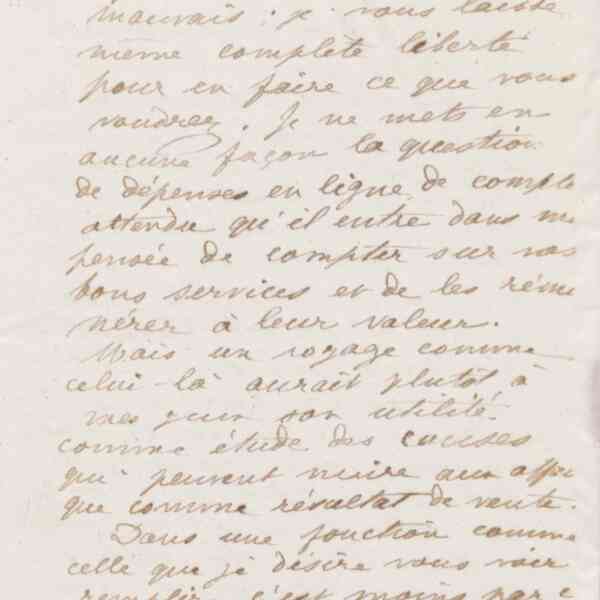 mauvais. je vous laisse
même complète liberté
pour en faire ce que vous
voudrez. Je ne mets en
aucune façon la question
de dépenses en ligne de compte
attendu qu'il entre dans ma
pensée de compter sur vos
bons services et de les rému
nérer à leur valeur.
Mais un voyage comme
celui-là aurait plutôt à
mes yeux son utilité
comme étude des causes
qui peuvent nuire aux affai
que comme résultat de vente.
Dans une fonction comme
celle que je désire vous voir
remplir c'est moins par